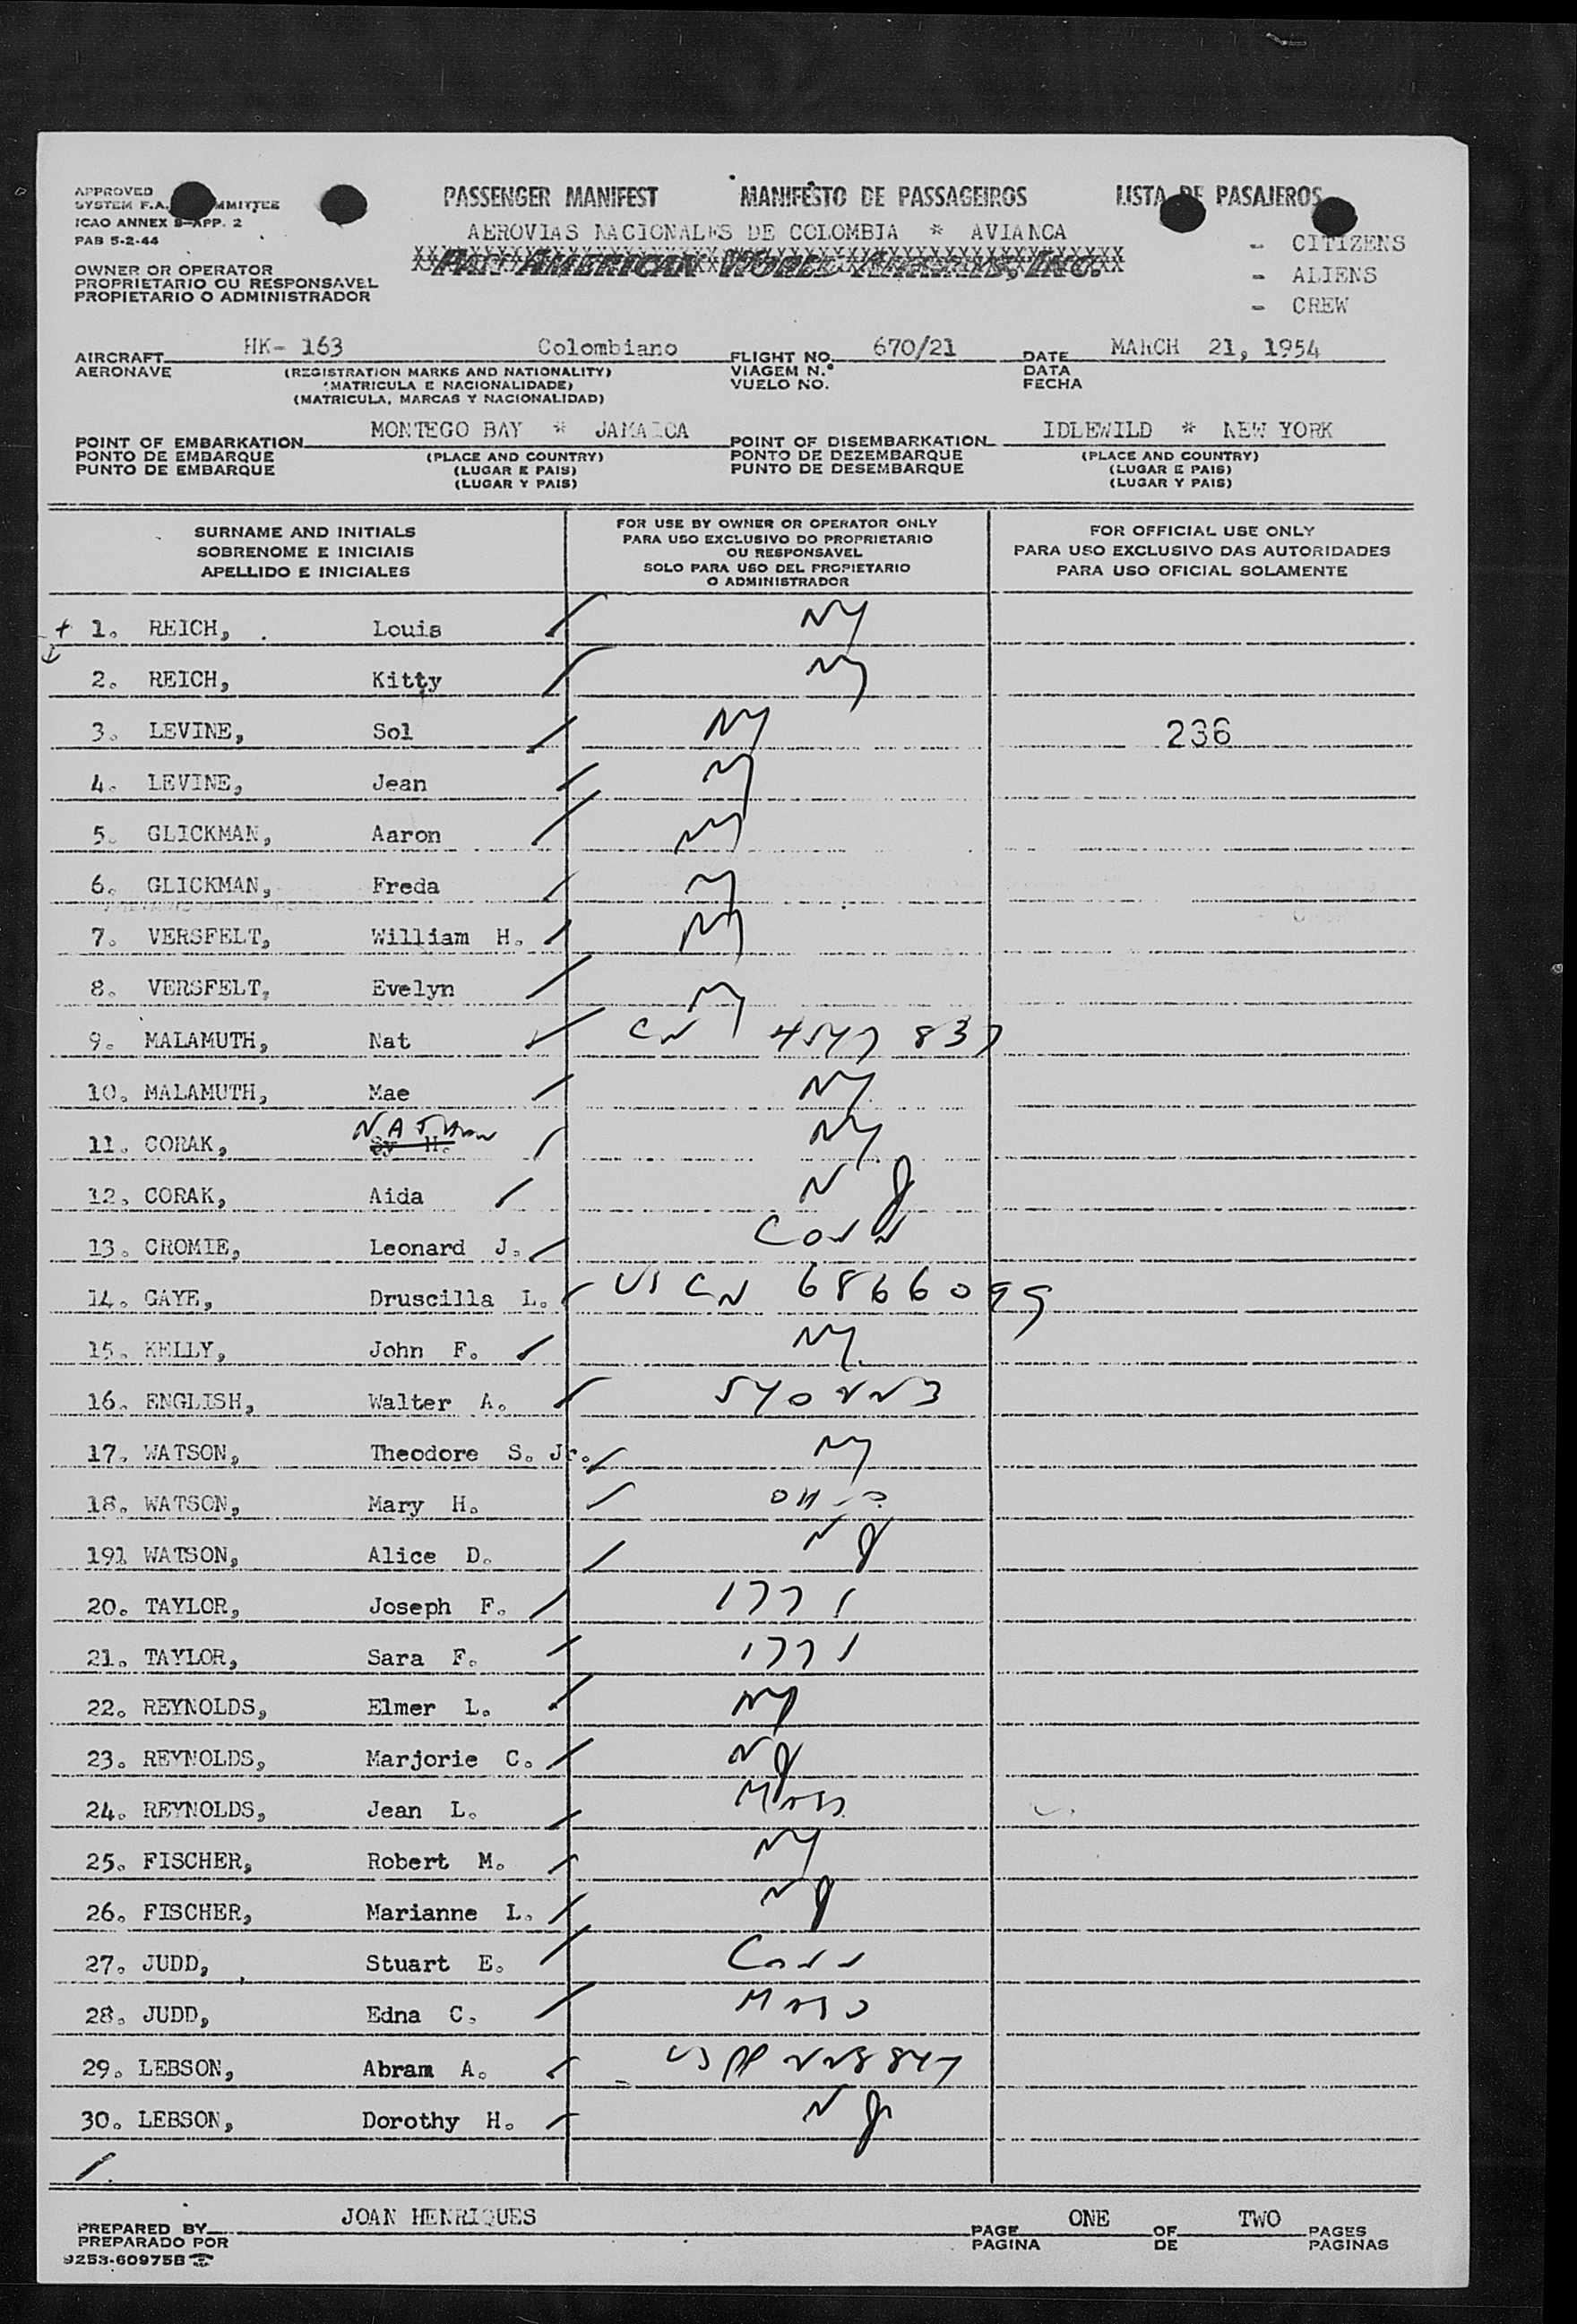 APPROVED
SYSTEM F.A. COMMITTEE
ICAO ANNEX 9-APP. 2
PAB 5-2-44
PASSENGER MANIFEST MANIFESTO DE PASSAGEIROS LISTA DE PASAJEROS
AEROVIAS NACIONALES DE COLOMBIA * AVIANCA
PAN AMERICAN WORLD AIRWAYS, INC.
- CITIZENS
- ALIENS
- CREW
OWNER OR OPERATOR
PROPRIETARIO OU RESPONSAVEL
PROPIETARIO O ADMINISTRADOR
AIRCRAFT HK- 163 Colombiano FLIGHT NO. 670/21 DATE MARCH 21, 1954
AERONAVE (REGISTRATION MARKS AND NATIONALITY) VIAGEM N.º DATA
(MATRICULA E NACIONALIDADE) VUELO NO. FECHA
(MATRICULA, MARCAS Y NACIONALIDAD)
POINT OF EMBARKATION MONTEGO BAY * JAMAICA POINT OF DISEMBARKATION IDLEWILD * NEW YORK
PONTO DE EMBARQUE (PLACE AND COUNTRY) PONTO DE DEZEMBARQUE (PLACE AND COUNTRY)
PUNTO DE EMBARQUE (LUGAR E PAIS) PUNTO DE DESEMBARQUE (LUGAR E PAIS)
(LUGAR Y PAIS) (LUGAR Y PAIS)
SURNAME AND INITIALS
SOBRENOME E INICIAIS
APELLIDO E INICIALES
FOR USE BY OWNER OR OPERATOR ONLY
PARA USO EXCLUSIVO DO PROPRIETARIO
OU RESPONSAVEL
SOLO PARA USO DEL PROPIETARIO
O ADMINISTRADOR
FOR OFFICIAL USE ONLY
PARA USO EXCLUSIVO DAS AUTORIDADES
PARA USO OFICIAL SOLAMENTE
1. REICH, Louis NY
2. REICH, Kitty NY
3. LEVINE, Sol NY 236
4. LEVINE, Jean NY
5. GLICKMAN, Aaron NY
6. GLICKMAN, Freda NY
7. VERSFELT, William H. NY
8. VERSFELT, Evelyn NY
9. MALAMUTH, Nat CN 4547 837
10. MALAMUTH, Mae NY
11. CORAK, Sy H. NATHAN NY
12. CORAK, Aida NJ
13. CROMIE, Leonard J. Conn
14. GAYE, Druscilla L. US CN 6866099
15. KELLY, John F. NY
16. ENGLISH, Walter A. 540223
17. WATSON, Theodore S. Jr. NY
18. WATSON, Mary H. OHIO
191 WATSON, Alice D. NJ
20. TAYLOR, Joseph F. 1771
21. TAYLOR, Sara F. 1771
22. REYNOLDS, Elmer L. NY
23. REYNOLDS, Marjorie C. NJ
24. REYNOLDS, Jean L. Mass
25. FISCHER, Robert M. NY
26. FISCHER, Marianne L. NJ
27. JUDD, Stuart E. Conn
28. JUDD, Edna C. Mass
29. LEBSON, Abram A. US PP 228847
30. LEBSON, Dorothy H. NJ
PREPARED BY JOAN HENRIQUES PAGE ONE OF TWO PAGES
PREPARADO POR PAGINA DE PAGINAS
9253-60975B